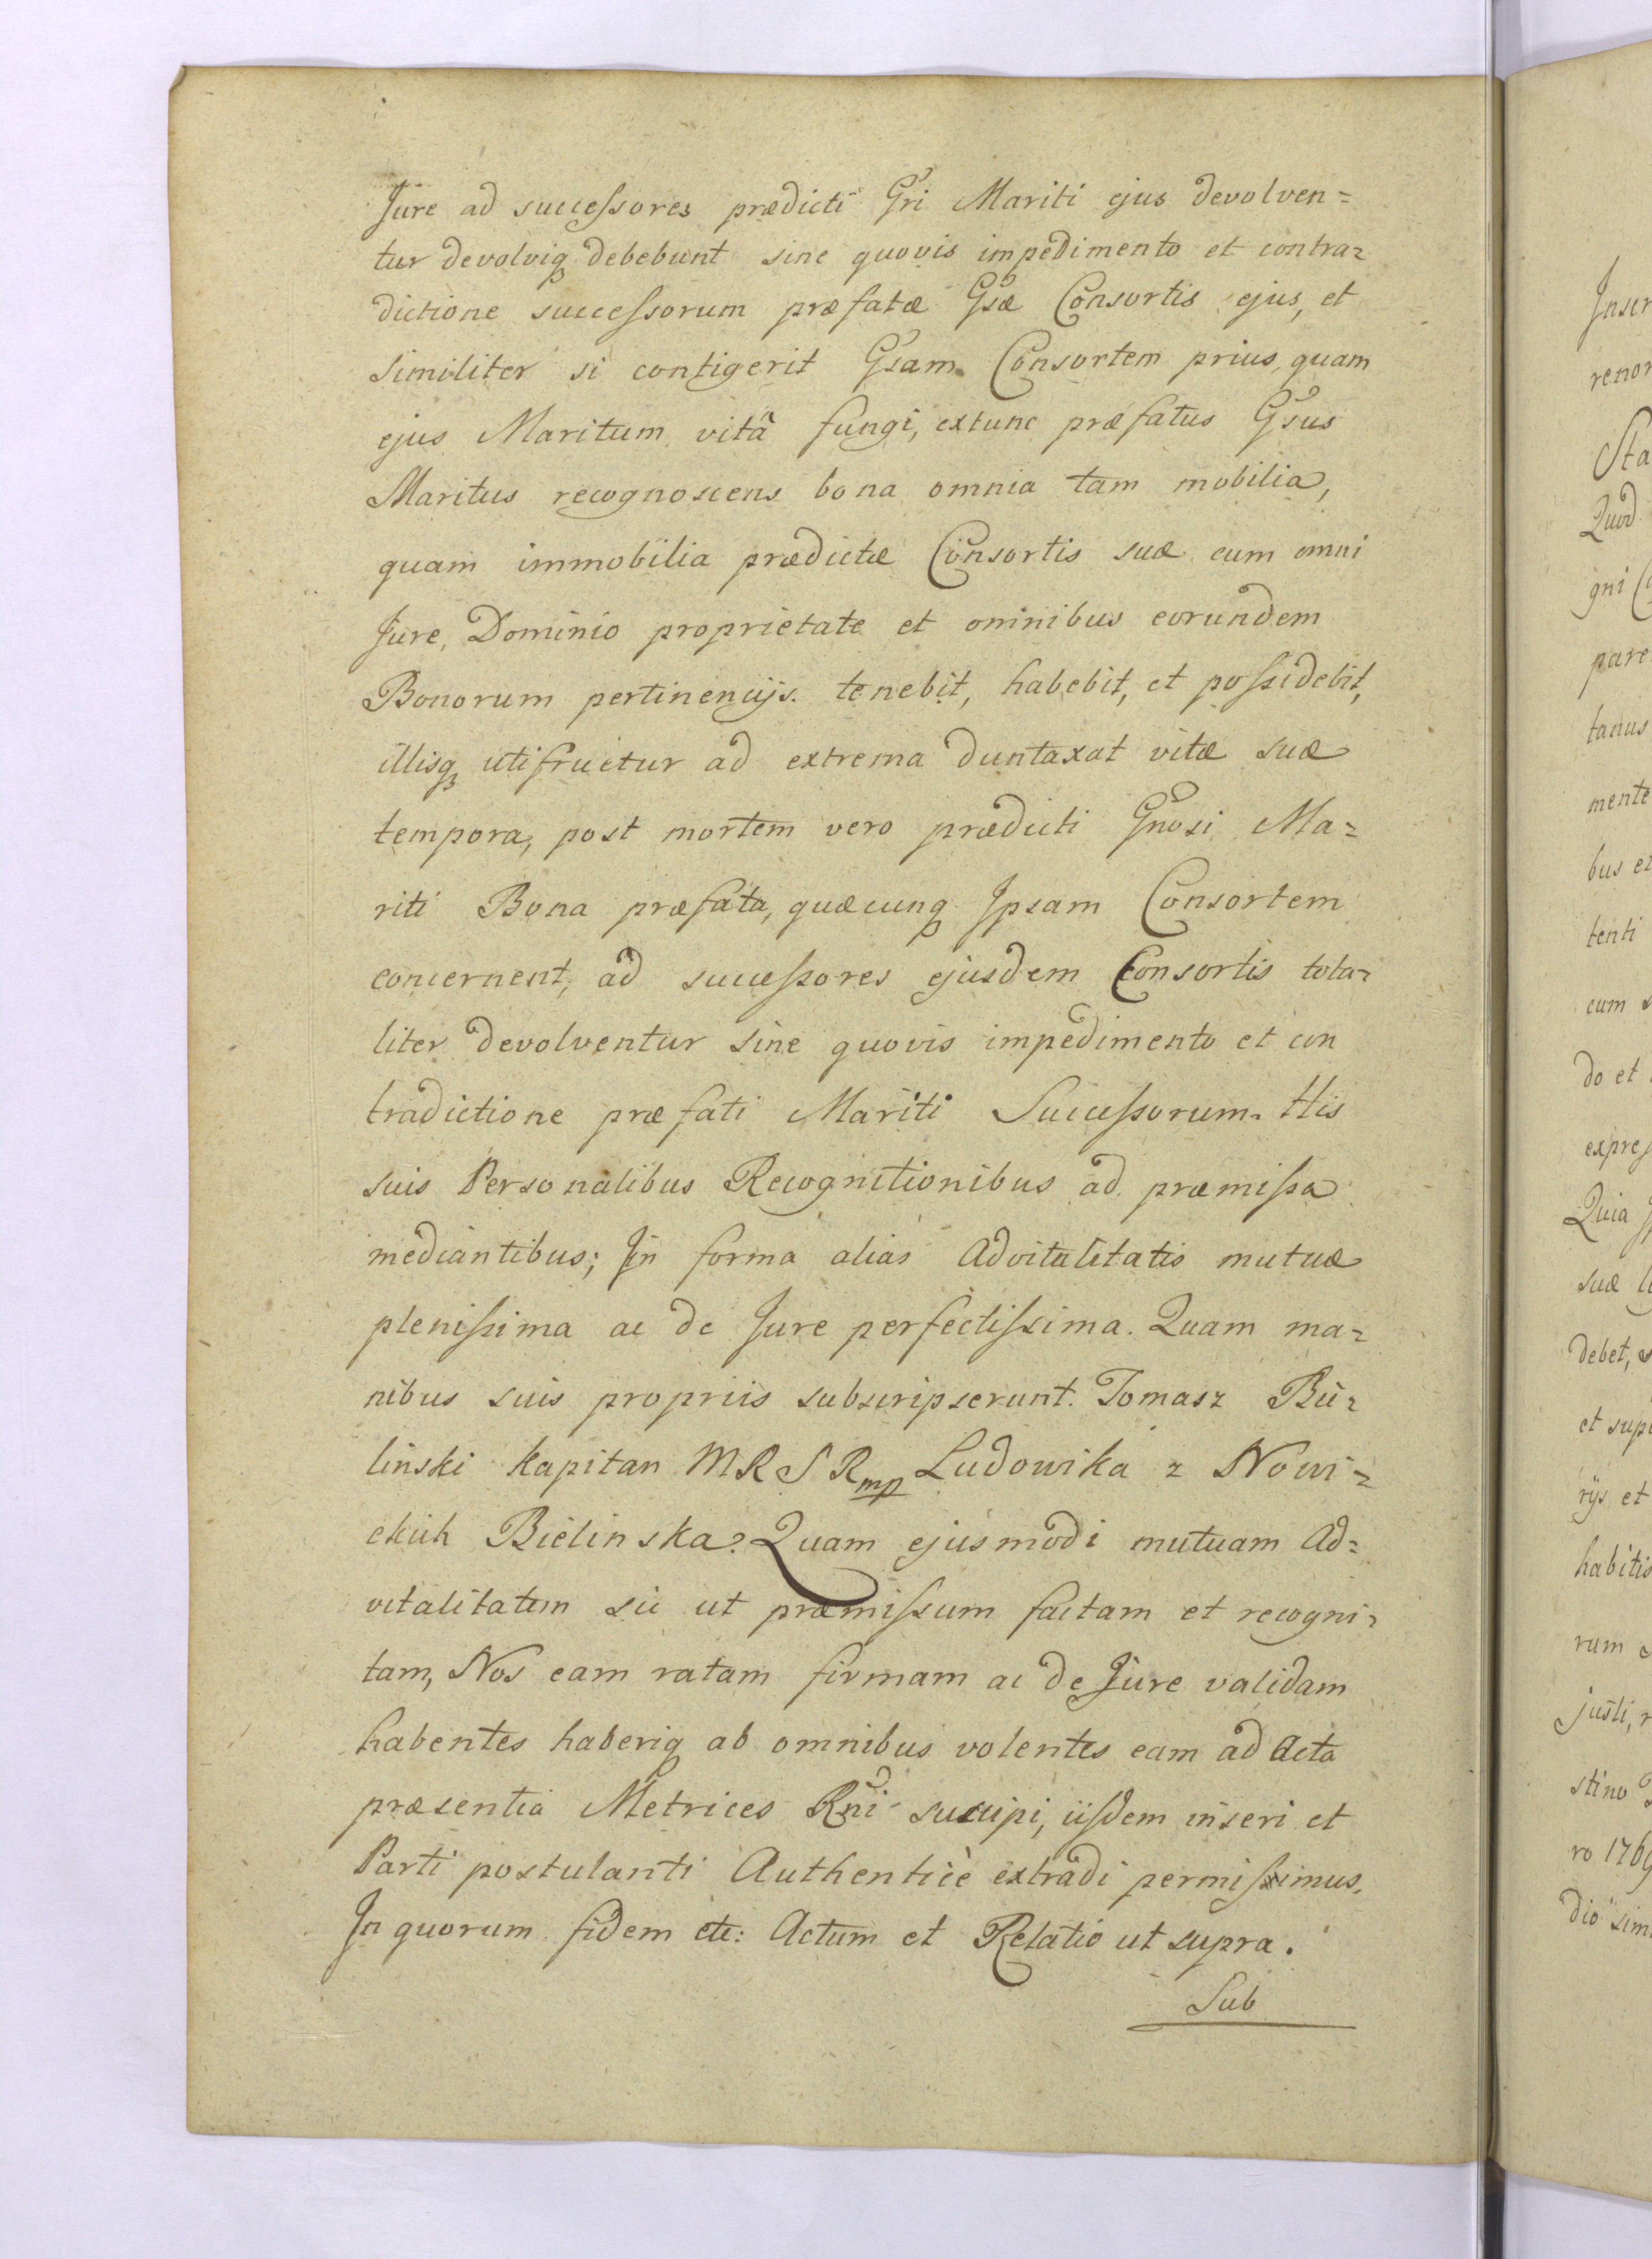 Jure ad successores prædicti Gri Mariti ejus devolven=
tur devolviq debebunt sine quovis impedimento et contra=
dictione successorum præfatæ Gsæ Consortis ejus, et
similiter si contigerit Gsam Consortem prius, quam
ejus Maritum vitâ fungi, extunc præfatus Gsus
Maritus recognoscens bona omnia tam mobilia,
quam immobilia prædictæ Consortis suæ cum omni
Jure, Dominio proprietate et omnibus eorundem
Bonorum pertinencijs. tenebit, habebit, et possidebit,
illisq utifruetur ad extrema duntaxat vitæ suæ
tempora, post mortem vero prædicti Gnosi Ma=
riti Bona præfata, quæcunq Ipsam Consortem
concernent, ad successores ejusdem Consortis tota=
liter devolventur sine quovis impedimento et con
tradictione præfati Mariti Successorum. His
suis Personalibus Recognitionibus ad præmissa
mediantibus; In forma alias Advitalitatis mutuæ
plenissima ac de Jure perfectissima. Quam ma=
nibus suis propriis subscripserunt. Tomasz Bie=
linski Kapitan MRSR mp Ludowika z Nowi=
ckich Bielinska. Quam ejusmodi mutuam Ad=
vitalitatem sic ut præmissum factam et recogni=
tam, Nos eam ratam firmam ac de Jure validam
habentes haberiq ab omnibus volentes eam ad Acta
præsentia Metrices Rni suscipi, iisdem inseri et
Parti postulanti Authenticè extradi permissimus.
In quorum fidem etc: Actum et Relatio ut supra.
Sub